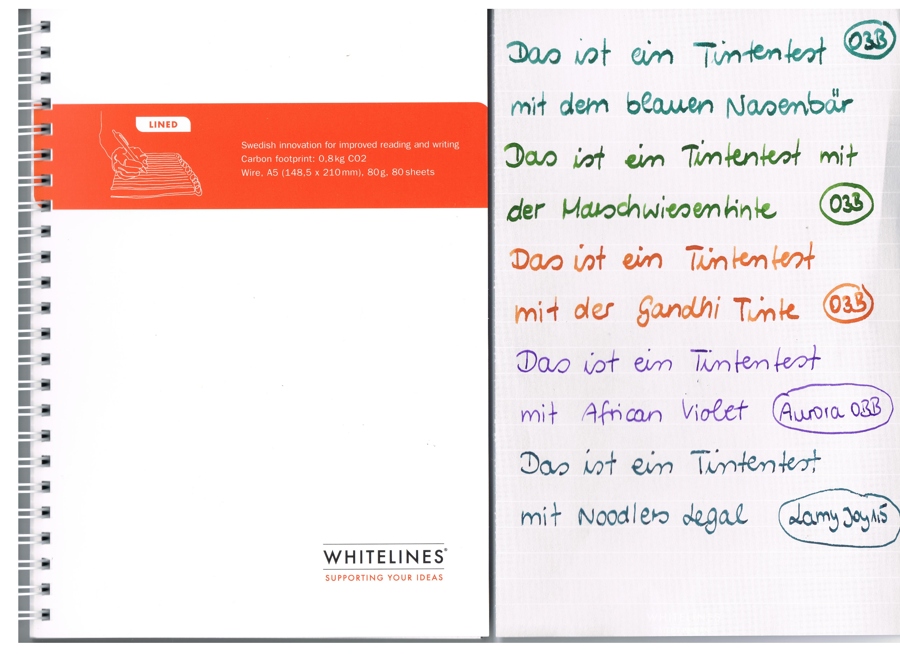 LINED
Swedish innovation for improved reading and writing
Carbon footprint: 0.8 kg CO2
Wire, A5 (148,5 x 210 mm), 80g, 80 sheets
WHITELINES®
SUPPORTING YOUR IDEAS
Das ist ein Tintentest O3B
mit dem blauen Nasenbär
Das ist ein Tintentest mit
der Marschwiesentinte O3B
Das ist ein Tintentest
mit der Gandhi Tinte O3B
Das ist ein Tintentest
mit African Violet Aurora O3B
Das ist ein Tintentest
mit Noodlers Legal Lamy Joy 1.5